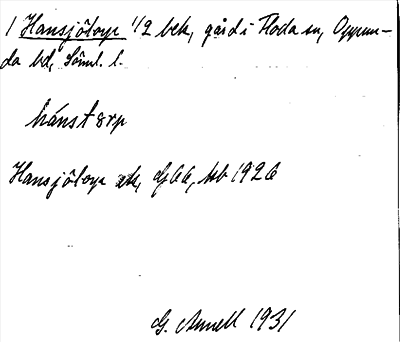 1 Hansjötorp 1/2 bek, gård i Floda sn, Oppun-
da hd, Söml. l.
hánstørp
Hansjötorp ek, Gj 66, tsb 1926
G. Annell 1931